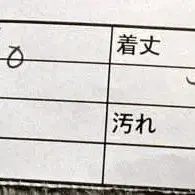 0 着丈
汚れ